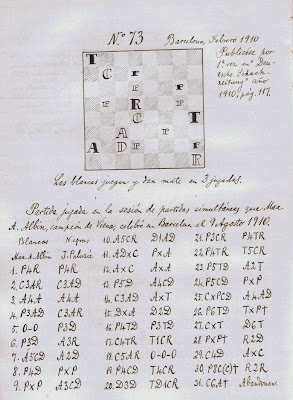 Nº 73
Barcelona, Febrero 1910
Publicóse por
1ª vez en "Deu-
tsche Schach-
zeitung" año
1910, pág. 117.
T
C F
F
F R F
C T
A F
A D F
R
Las blancas juegan y dan mate en 3 jugadas.
Partida jugada en la sesión de partidas simultáneas que Max
A. Albin, campeón de Viena, celebró en Barcelona el 9 Agosto 1910.
Blancas Negras 10. A5CR D1AD 21. P3CR P4TR
Max A. Albin J. Paluzie 11. AxD PxA 22. P4TR T5CR
1. P4R P4R 12. AxC AxA 23. P5TD A2T
2. C3AR C3AD 13. P5D A4CD 24. P5CD PxP
3. A4A A4A 14. C3AD AxT 25. CxPCD A4AD
4. P3AD C3AR 15. DxA D2D 26. P6TD TxP+
5. 0-0 P3D 16. P4TD P3TD 27. CxT D6T
6. P3D A3R 17. C4TR T1CR 28. PxP+ R2D
7. A5CD A2D 18. C5AR 0-0-0 29. C4D AxC
8. P4D PxP 19. P4CD T4CR 30. P8C(C)+ R2R
9. PxP A3CD 20. D3D TD1CR 31. C6A+ Abandonan.